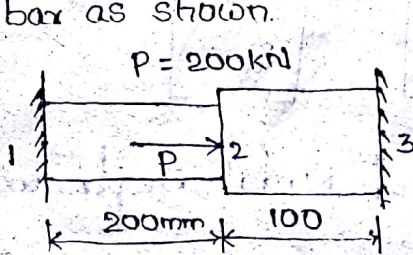 bar as shown.
P = 200kN
1 P 2 3
200mm 100